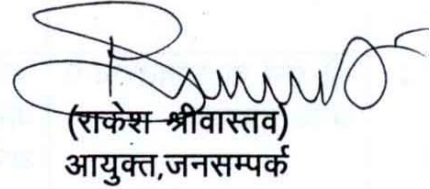 (राकेश श्रीवास्तव)
आयुक्त,जनसम्पर्क